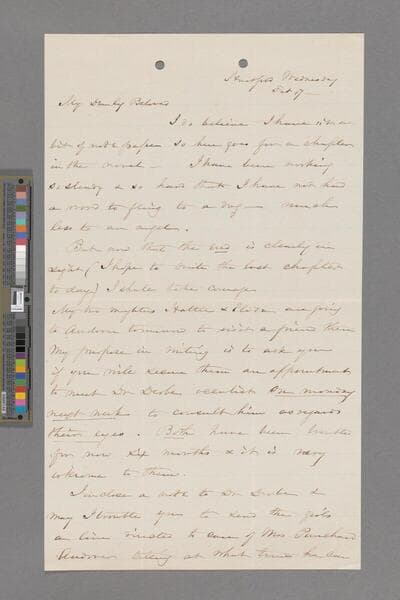 Wednesday
Oct 17 —
My Dearly Beloved
I do believe I have not a
bit of note paper so here goes for a chapter
in the novel — I have been working
so steady & so hard that I have not had
a word to fling to a dog — much
less to an angel.
But now that the end is clearly in
sight (I hope to write the last chapter
to day) I shall take courage
My two mighties Hattie & Eliza are going
to Andover tomorrow to visit a friend there
My purpose in writing is to ask you
if you will secure them an appointment
to meet Dr Derby oculist on monday
next week to consult him as regards
their eyes. Both have been troubled
for now six months & it is very
irksome to them.
I inclose a note to Dr Derby &
may I trouble you to send the girls
a line directed to care of Mrs. Punchard
Andover telling at what time he can